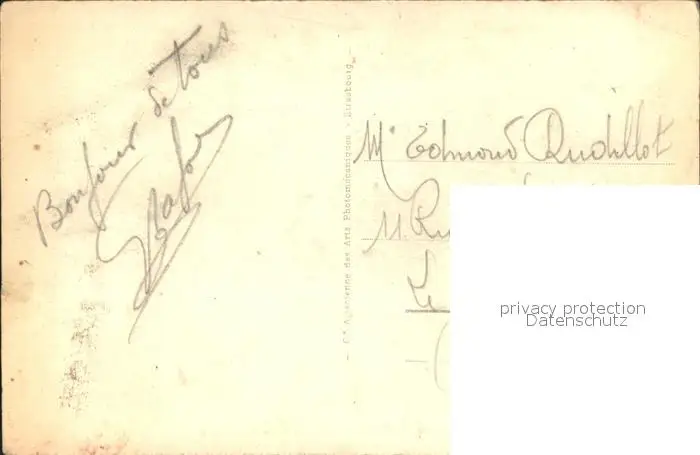 Bonjour de tous
Cie Alsacienne des Arts Photomécaniques - Strasbourg
Mr Edmond Rudillot
11 Ru
Le
privacy protection
Datenschutz